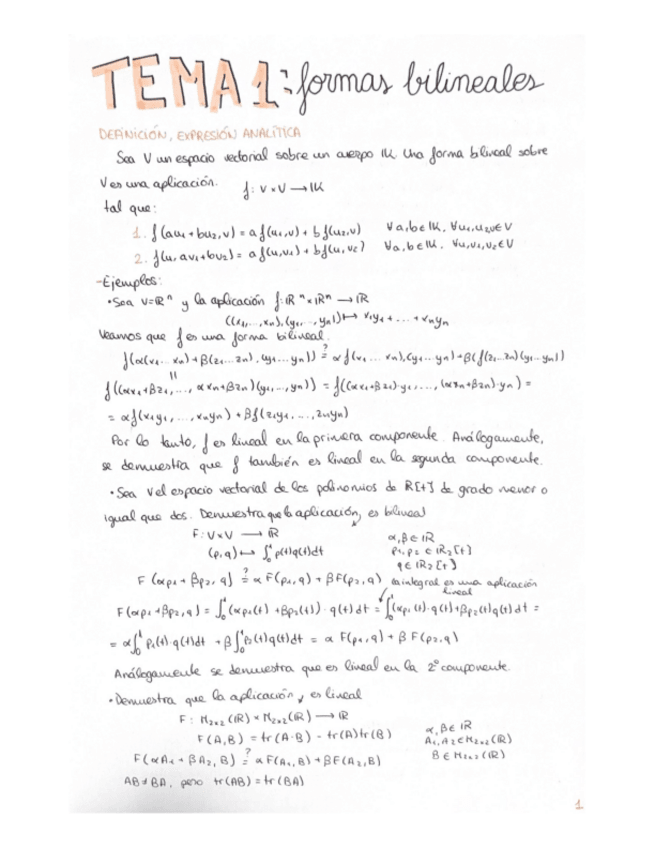 TEMA 1: formas bilineales
DEFINICIÓN, EXPRESIÓN ANALÍTICA
Sea V un espacio vectorial sobre un cuerpo IK. Una forma bilineal sobre
V es una aplicación. f: V×V → IK
tal que:
1. f(au₁+bu₂,v) = a f(u₁,v) + b f(u₂,v) ∀a,b∈IK, ∀u₁,u₂,v∈V
2. f(u,av₁+bv₂) = a f(u,v₁) + b f(u,v₂) ∀a,b∈IK, ∀u,v₁,v₂∈V
-Ejemplos:
• Sea V=ℝⁿ y la aplicación f: ℝⁿ×ℝⁿ → ℝ
((x₁,...,xₙ),(y₁,...,yₙ)) ↦ x₁y₁ + ... + xₙyₙ
Veamos que f es una forma bilineal.
f(α(x₁...xₙ)+β(z₁...zₙ),(y₁...yₙ)) ≟ αf(x₁...xₙ),(y₁...yₙ)+β(f(z₁...zₙ)(y₁...yₙ))
||
f((αx₁+βz₁,..., αxₙ+βzₙ)(y₁,...,yₙ)) = f((αx₁+βz₁)·y₁,...,(αxₙ+βzₙ)·yₙ) =
= αf(x₁y₁,...,xₙyₙ) + βf(z₁y₁,...,zₙyₙ)
Por lo tanto, f es lineal en la primera componente. Análogamente,
se demuestra que f también es lineal en la segunda componente.
• Sea V el espacio vectorial de los polinomios de R[t] de grado menor o
igual que dos. Demuestra que la aplicación, es bilineal
F: V×V → ℝ α,β∈ℝ
(p,q) ↦ ∫₀¹ p(t)q(t)dt p₁,p₂∈ℝ₂[t]
q∈ℝ₂[t]
F(αp₁+βp₂,q) ≟ αF(p₁,q) + βF(p₂,q) la integral es una aplicación
lineal
F(αp₁+βp₂,q) = ∫₀¹(αp₁(t)+βp₂(t))·q(t)dt = ∫₀¹(αp₁(t)·q(t)+βp₂(t)q(t)dt =
= α∫₀¹p₁(t)·q(t)dt + β∫₀¹p₂(t)q(t)dt = αF(p₁,q) + βF(p₂,q)
Análogamente se demuestra que es lineal en la 2º componente.
• Demuestra que la aplicación, es lineal
F: M₂ₓ₂(ℝ)×M₂ₓ₂(ℝ) → ℝ α,β∈ℝ
F(A,B) = tr(A·B) - tr(A)tr(B) A₁,A₂∈M₂ₓ₂(ℝ)
F(αA₁+βA₂,B) ≟ αF(A₁,B) + βF(A₂,B) B∈M₂ₓ₂(ℝ)
AB≠BA, pero tr(AB)=tr(BA)
1